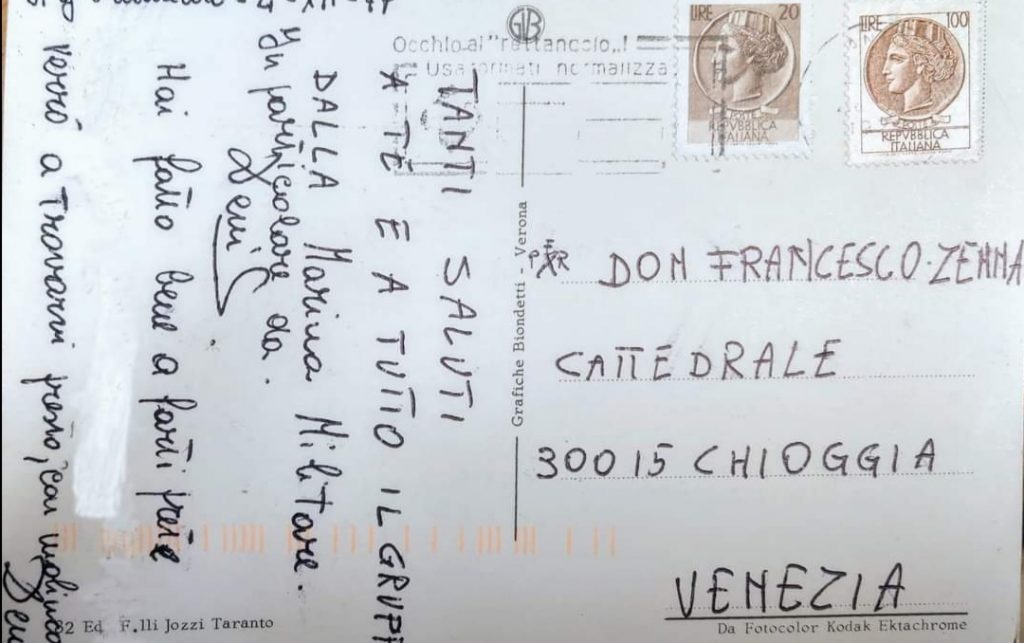 4-XII-77
TANTI SALUTI
A TE E A TUTTO IL GRUPP
DALLA Marina Militare.
In particolare da.
Hai fatto bene a farti prete
Verrò a trovarvi presto, con
GB
Occhio al "rettangolo..!
Usa formati normalizza
LIRE 20
REPVBBLICA
ITALIANA
LIRE 100
REPVBBLICA
ITALIANA
Grafiche Biondetti - Verona
PER DON FRANCESCO ZENNA
CATTEDRALE
30015 CHIOGGIA
VENEZIA
Ed. F.lli Jozzi Taranto
Da Fotocolor Kodak Ektachrome